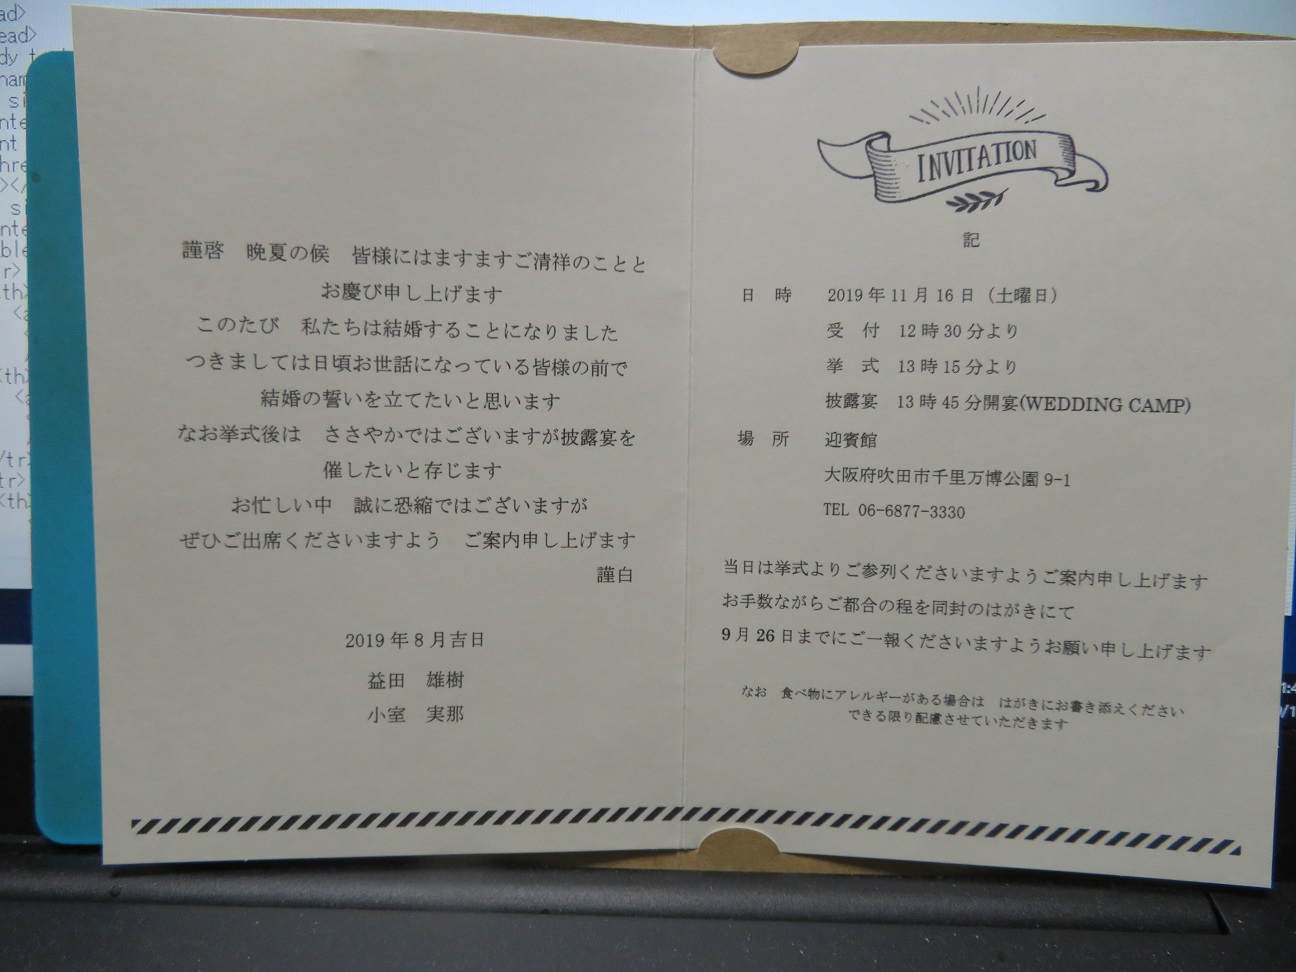 謹啓　晩夏の候　皆様にはますますご清祥のことと
お慶び申し上げます
このたび　私たちは結婚することになりました
つきましては日頃お世話になっている皆様の前で
結婚の誓いを立てたいと思います
なお挙式後は　ささやかではございますが披露宴を
催したいと存じます
お忙しい中　誠に恐縮ではございますが
ぜひご出席くださいますよう　ご案内申し上げます
謹白
2019年8月吉日
益田　雄樹
小室　実那
INVITATION
記
日　時　2019年11月16日（土曜日）
受　付　12時30分より
挙　式　13時15分より
披露宴　13時45分開宴(WEDDING CAMP)
場　所　迎賓館
大阪府吹田市千里万博公園9-1
TEL 06-6877-3330
当日は挙式よりご参列くださいますようご案内申し上げます
お手数ながらご都合の程を同封のはがきにて
9月26日までにご一報くださいますようお願い申し上げます
なお　食べ物にアレルギーがある場合は　はがきにお書き添えください
できる限り配慮させていただきます